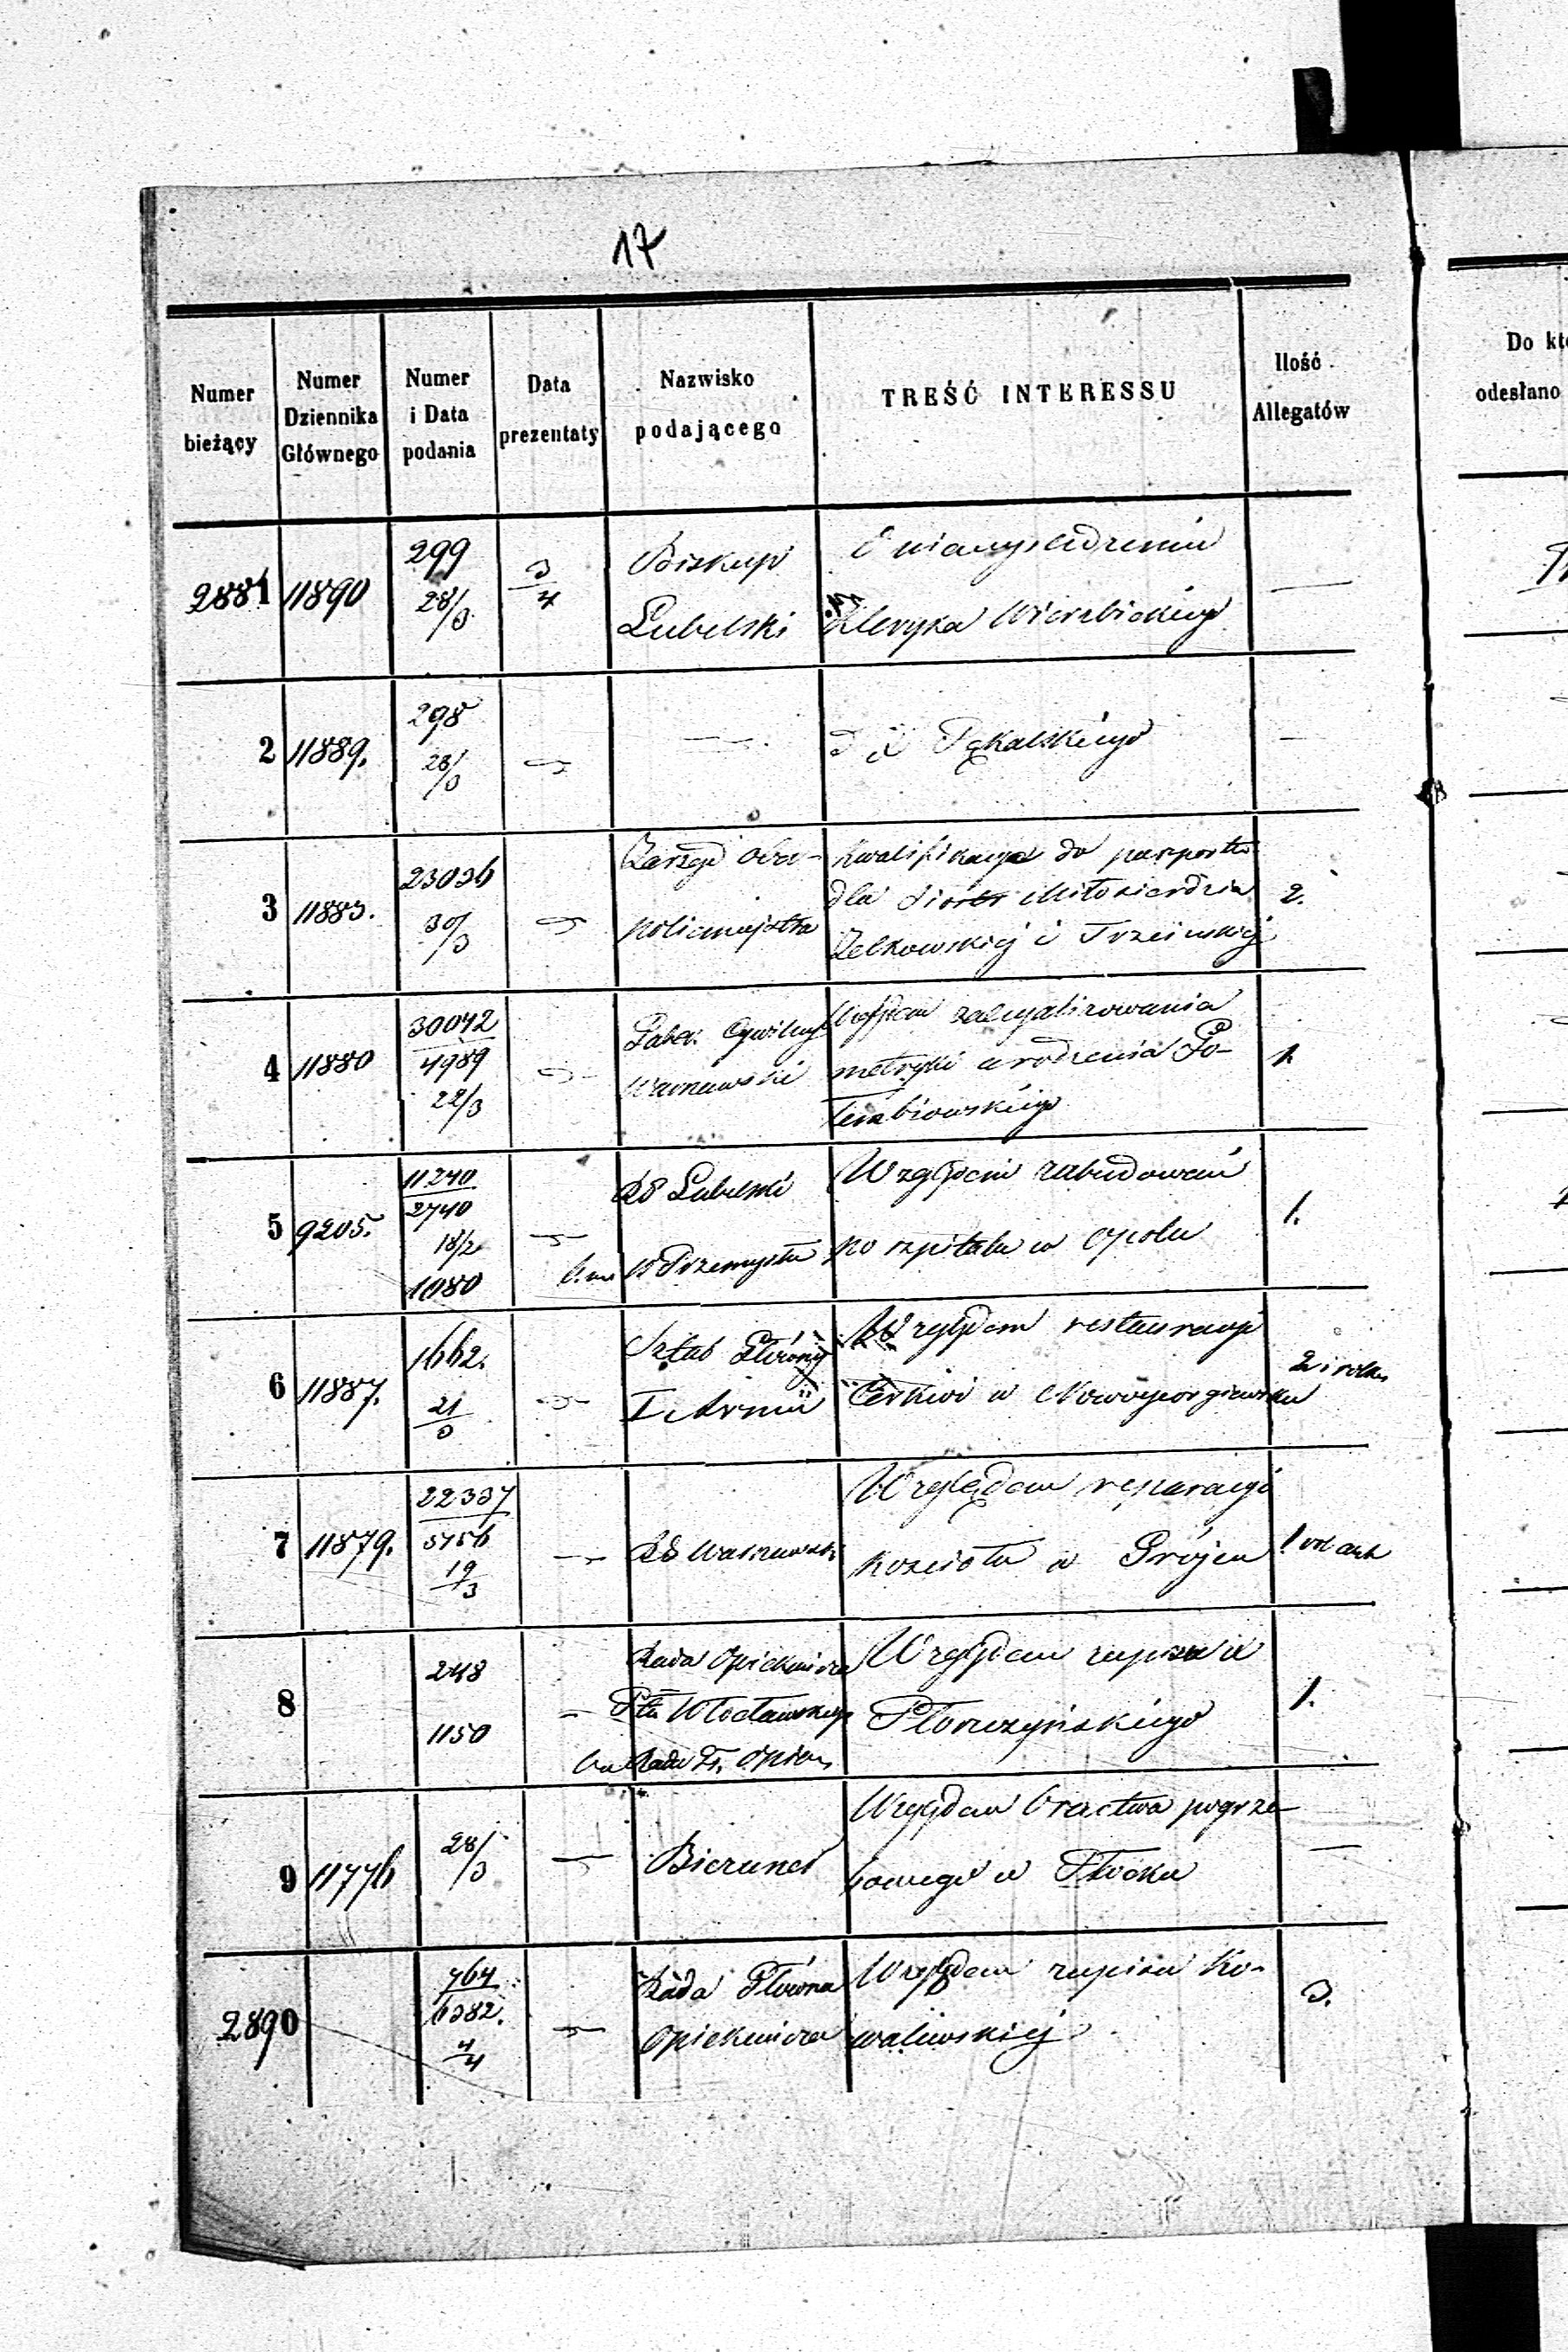 17
Numer bieżący
Numer Dziennika Głównego
Numer i Data podania
Data prezentaty
Nazwisko podającego
TREŚĆ INTERESSU
Ilość Allegatów
Do kt
odesłano
2881 11890
299
28/3
3/4
Biskup
Lubelski
O
Kleryka Wierzbickiego
—
2 11889.
298
28/3
—
X Pękalskiego
—
3 11883.
23036
30/3
Zarząd Ober-
policmajstra
Kwalifikacya do paszportu
dla Siostr Miłosierdzia
Zelkowskiej i Trzcińskiej
2.
4 11880
30042
4989
22/3
Guber. Cywilny
Warszawski
Wzglęm zalegalizowania
metryki urodzenia Go-
łembiowskiego
1.
5 9205.
11240
2740
18/2
1080
RG Lubelski
W Przemysłu
Względem zabudowań
po szpitalu w Opolu
1.
6 11887.
1662.
21/3
Sztab Główny
I Armii
Względem restauracji
Cerkwi w Nowogeorgiewsku
2 i
7 11879.
22337
5156
19/3
RG Warszawski
Względem reparacyi
Kościoła w Grójcu
1
8
248
1150
Rada Opiekuńcza
Ptu Włocławskiego
Rada Gł. Opiek.
Względem zapisu X
Płoszczyńskiego
1.
9 11776
28/3
Bieruneł
Względem bractwa pogrze-
bowego w Płocku
—
2890
764
6382.
4/4
Rada Główna
Opiekuńcza
Względem zapisu Ko-
walewskiej
3.